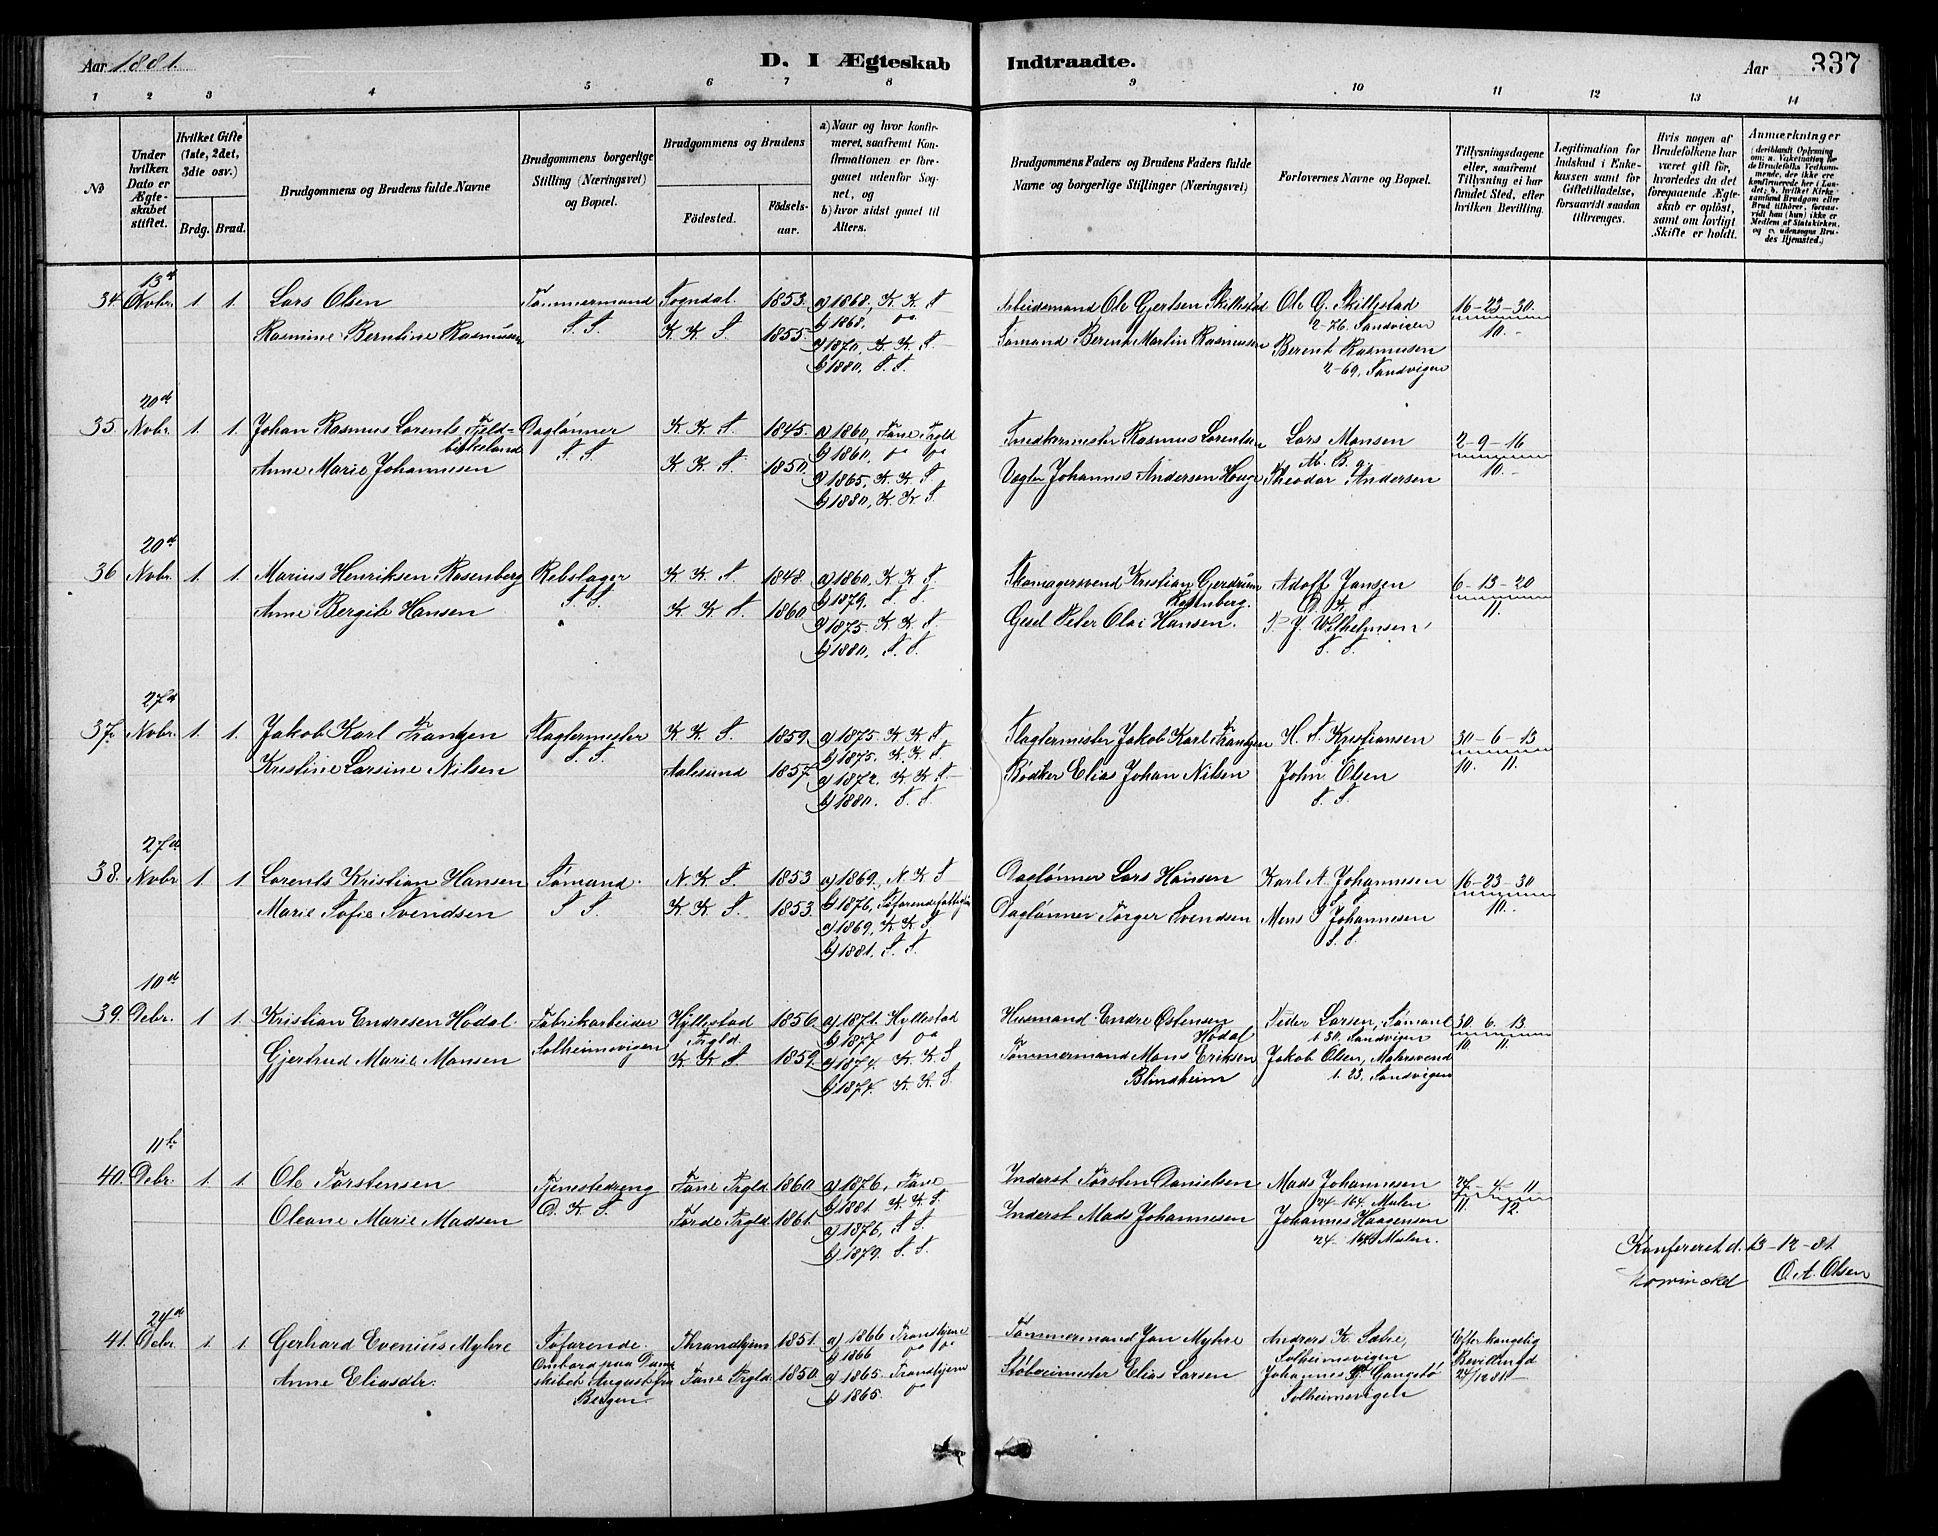 Aar 1881.
D. I Ægteskab Indtraadte.
Aar 337
1 2 3 4 5 6 7 8 9 10 11 12 13 14
No
Under hvilken Dato er Ægteskabet stiftet.
Hvilket Gifte (1ste, 2det, 3die osv.)
Brdg. Brud.
Brudgommens og Brudens fulde Navne
Brudgommens borgerlige Stilling (Næringsvei) og Bopæl.
Brudgommens og Brudens
Födested.
Födselsaar.
a) Naar og hvor konfirmeret, saafremt Konfirmationen er foregaaet udenfor Sognet, og
b) hvor sidst gaaet til Alters.
Brudgommens Faders og Brudens Faders fulde Navne og borgerlige Stillinger (Næringsvei)
Forlovernes Navne og Bopæl.
Tillysningsdagene eller, saafremt Tillysning ei har fundet Sted, efter hvilken Bevilling.
Legitimation for Indskud i Enkekassen samt for Giftetilladelse, forsaavidt saadan tiltrænges.
Hvis nogen af Brudefolkene har været gift før, hvorledes da det foregaaende Ægteskab er opløst, samt om lovligt Skifte er holdt.
Anmærkninger (deriblandt Oplysning om: a. Vakcination for de Brudefolks Vedkommende, der ikke ere konfirmerede her i Landet; b. hvilket Kirkesamfund Brudgom eller Brud tilhører, forsaavidt han (hun) ikke er Medlem af Statskirken, og c. udensogns Brudes Hjemsted.)
34. 13de Novbr. 1. 1. Lars Olsen Tømmermand Sogndal. 1853. a) 1868, K. K. S Arbeidsmand Ole Gjertsen Skillestad Ole G. Skillestad 16-23-30.
S. S. b) 1868. do 2-76. Sandvigen 10.
Rasmine Berntine Rasmussen K. K. S 1855. a) 1870, K. K. S. Sømand Berent Martin Rasmussen Berent Rasmussen
b) 1880, S. S. 2-69, Sandvigen
35. 20de Novbr. 1. 1. Johan Rasmus Lorents Fjeldbirkeland Daglønner K. K. S. 1845. a) 1860, Fane Prgld Snedkermester Rasmus Lorentsen Lars Monsen 2-9-16
S. S. b) 1860. do do M. B. 9 10.-
Anne Marie Johannesen K. K. S. 1850. a) 1865, K. K. S Vægter Johannes Andersen Houge Theodor Andersen
b) 1880, K. K. S.
36 20de Novbr. 1. 1. Marius Henriksen Rosenberg Rebslager K. K. S. 1848. a) 1860. K K S. Skomagersvend Kristian Gerdrum Rosenberg. Adolf Jansen 6-13-20
S. S. b) 1879, S. S. D. K. S 11.
Anne Bergite Hansen K. K. S. 1860 a) 1875. K. K. S. Gesel Peter Olai Hansen. P. J. Wilhelmsen
b) 1880, S. S. S. S.
37. 27de Novbr. 1. 1. Jakob Karl Frantzen Slagtermester K. K. S. 1859. a) 1875 K. K. S. Slagtermester Jakob Karl Frantzen H. S. Kristiansen 30-6-13
S. S. b) 1875. K. K. S. 10. 11.
Kristine Larsine Nilsen Aalesund 1857. a) 1872, K. K. S. Bødker Elias Johan Nilsen John Olsen
b) 1880. S. S. S. S.
38. 27de Novbr 1. 1. Lorents Kristian Hansen Sømand. N. K. S. 1853 a) 1869., N. K. S Daglønner Lars Hansen Karl A. Johannesen 16-23-30
S S. b) 1876, S. S. 10.-
Marie Sofie Svendsen K. K. S. 1853. a) 1869, K. K. S Daglønner Torger Svendsen Mons P Johannesen
b) 1881. S. S. S. S.
39. 10de Debr. 1 1. Kristian Endresen Hødal. Fabrikarbeider Hyllestad Prgld. 1856. a) 1871. Hyllestad Husmand Endre Østensen Hødal Peder Larsen, Sømand 30. 6. 13.
Solheimsvigen b) 1877 do 1 30. Sandvigen 10. 11.
Gjertrud Marie Monsen K. K. S. 1859. a) 1874. K. K. S. Tømmermand Mons Eriksen Blindheim Jakob Olsen, Malersvend
b) 1874. K. K. S. 1. 23, Sandvigen
40. 11te Debr. 1 1. Ole Torstensen Tjenestedreng Fane Prgld 1860 a) 1876, Fane Inderst Torsten Danielsen Mads Johannesen 27- 4. 11.
D. K. S. b) 1881 K. K. S. 24-164 Mulen 11. 12.
Oleane Marie Madsen Førde Prgld. 1861. a) 1876, S. S Inderst Mads Johannesen Johannes Haagensen
b) 1879. S. S. 24-164 Mulen.
Konfereret d. 13-12-81.
O. A. Olsen
41. 24de Debr 1. 1. Gerhard Evenius Myhre Søfarende. Thrandhjem 1851. a) 1866 Trondhjem Tømmermand Jan Myhre Andreas K. Sæbø, Efter kongelig
Ombord paa Dampskibet August fra Bergen b) 1866 do do Solheimsvigen Bevilling d
Anne Eliasdtr. Fane Prgld. 1850. a) 1865. Trondhjem Støberimester Elias Larsen Johannes G. Gangstø 24/12 81
b) 1865. do Solheimsvigen